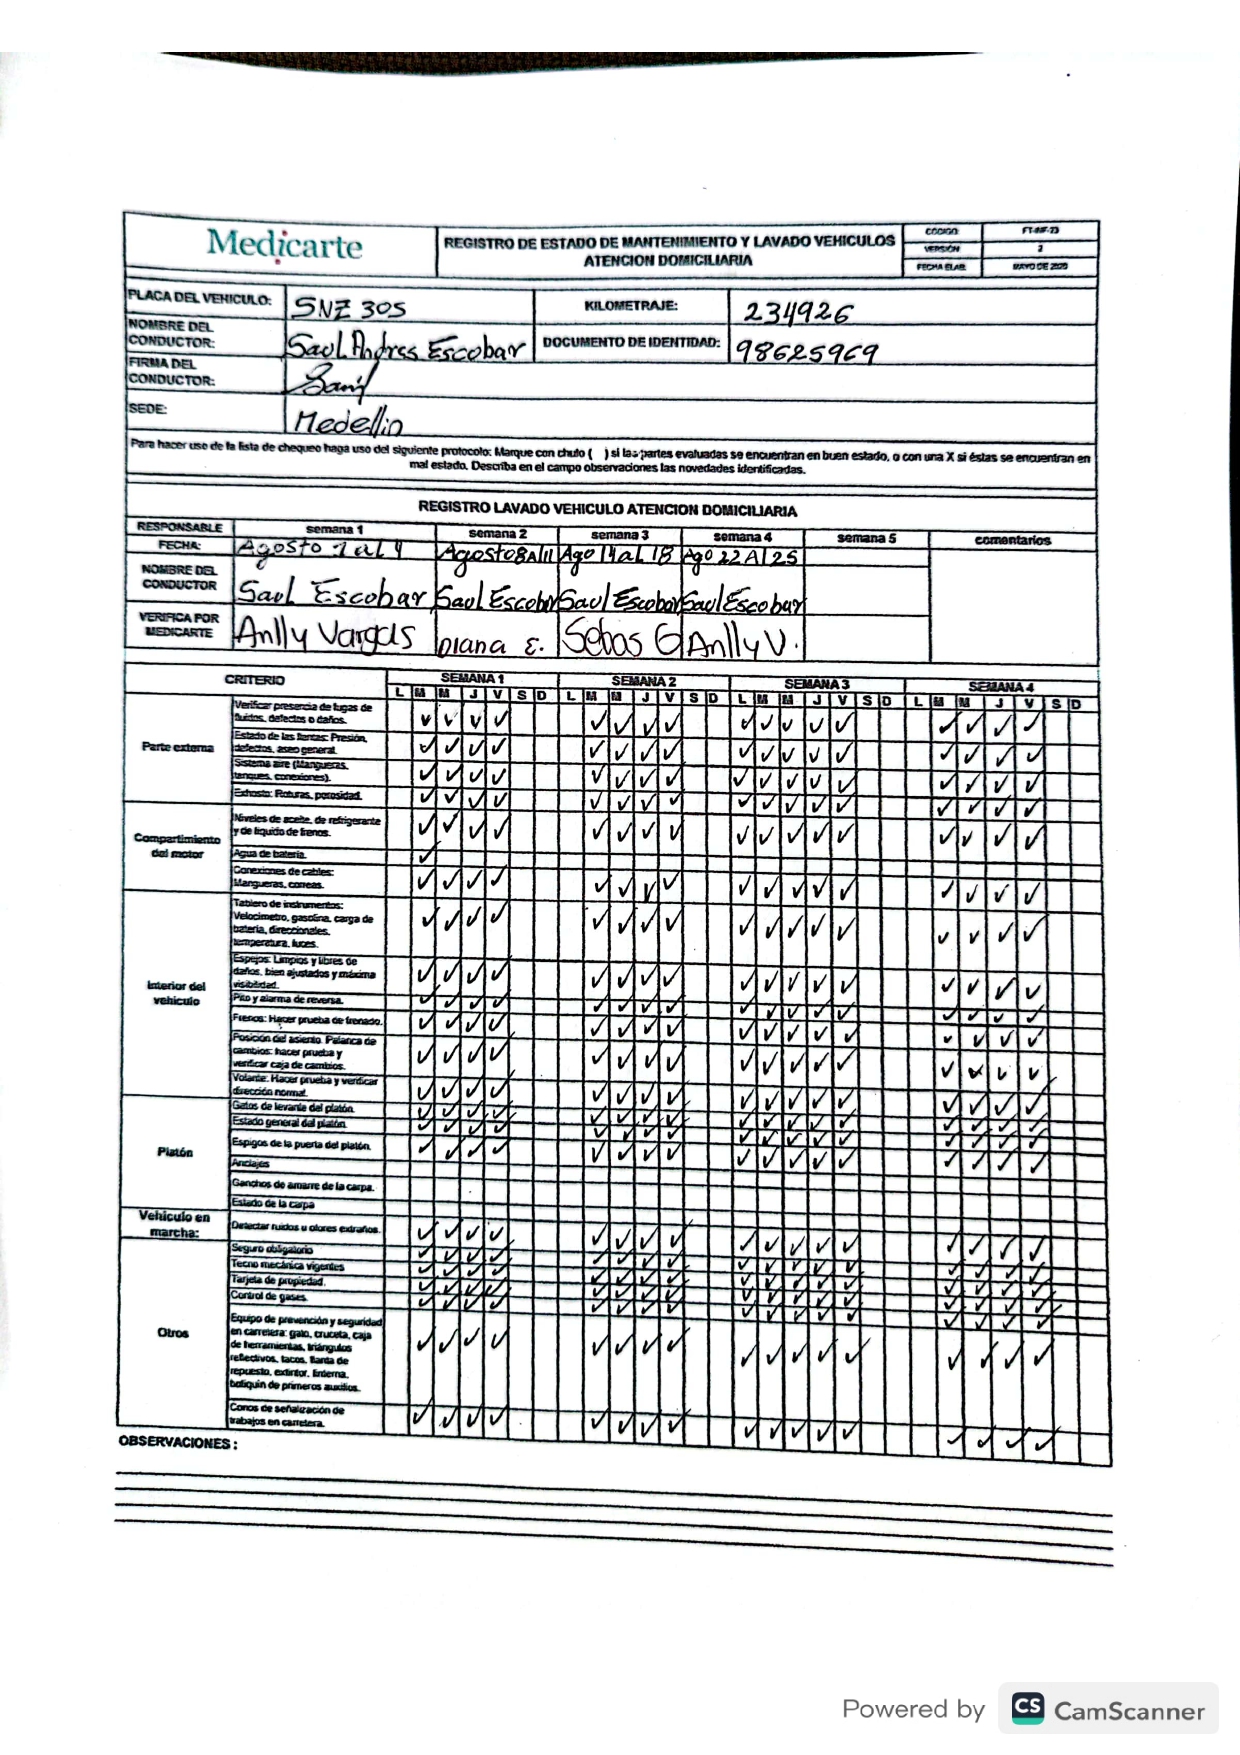 Medicarte
REGISTRO DE ESTADO DE MANTENIMIENTO Y LAVADO VEHICULOS
ATENCION DOMICILIARIA
CODIGO
VERSIÓN 2
FECHA ELAB. MAYO DE 2020
PLACA DEL VEHICULO: SNZ 305 KILOMETRAJE: 234926
NOMBRE DEL CONDUCTOR: Saul Andres Escobar DOCUMENTO DE IDENTIDAD: 98625969
FIRMA DEL CONDUCTOR:
SEDE: Medellin
Para hacer uso de la lista de chequeo haga uso del siguiente protocolo: Marque con chulo ( ) si las partes evaluadas se encuentran en buen estado, o con una X si éstas se encuentran en
mal estado. Describa en el campo observaciones las novedades identificadas.
REGISTRO LAVADO VEHICULO ATENCION DOMICILIARIA
RESPONSABLE semana 1 semana 2 semana 3 semana 4 semana 5 comentarios
FECHA: Agosto 1 al 4 Agosto 8 Al 11 Ago 14 al 18 Ago 22 Al 25
NOMBRE DEL CONDUCTOR Saul Escobar Saul Escobar Saul Escobar Saul Escobar
VERIFICA POR MEDICARTE Anlly Vargas Diana E. Sebas G Anlly V.
CRITERIO SEMANA 1 SEMANA 2 SEMANA 3 SEMANA 4
L M M J V S D L M M J V S D L M M J V S D L M M J V S D
Parte externa
Verificar presencia de fugas de
fluidos, defectos o daños.
Estado de las llantas: Presión,
defectos, aseo general.
Sistema aire (Mangueras,
tanques, conexiones).
Exhosto: Roturas, porosidad.
Compartimiento
del motor
Niveles de aceite, de refrigerante
y de liquido de frenos.
Agua de batería.
Conexiones de cables:
Mangueras, correas.
Interior del
vehiculo
Tablero de instrumentos:
Velocimetro, gasolina, carga de
batería, direccionales,
temperatura, luces.
Espejos: Limpios y libres de
daños, bien ajustados y máxima
visibilidad.
Pito y alarma de reversa.
Frenos: Hacer prueba de frenado.
Posición del asiento. Palanca de
cambios: hacer prueba y
verificar caja de cambios.
Volante: Hacer prueba y verificar
dirección normal.
Platón
Gatos de levante del platón.
Estado general del platón.
Espigos de la puerta del platón.
Anclajes
Ganchos de amarre de la carpa.
Estado de la carpa
Vehiculo en
marcha:
Detectar ruidos u olores extraños.
Otros
Seguro obligatorio
Tecno mecánica vigentes
Tarjeta de propiedad.
Control de gases.
Equipo de prevención y seguridad
en carretera: gato, cruceta, caja
de herramientas, triángulos
reflectivos, tacos, llanta de
repuesto, extintor, linterna,
botiquín de primeros auxilios.
Conos de señalización de
trabajos en carretera.
OBSERVACIONES :
Powered by CS CamScanner